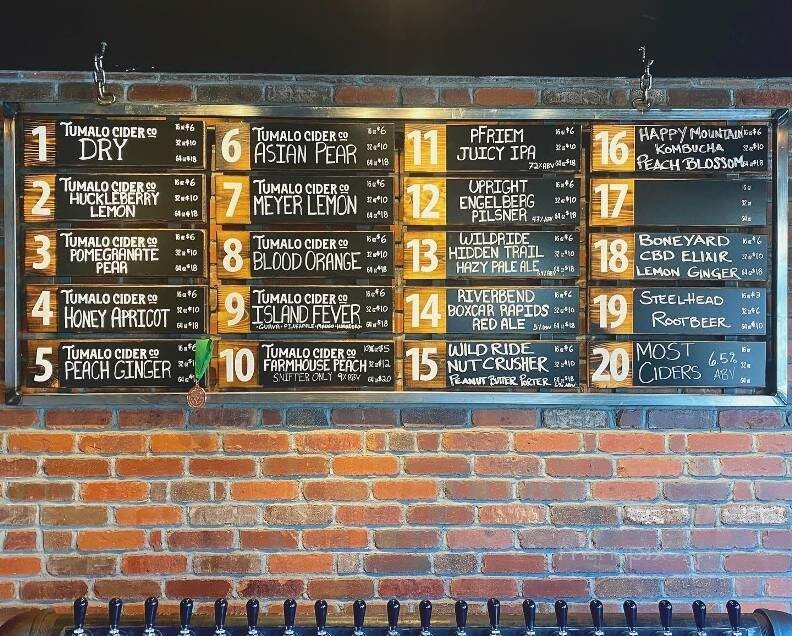 1
TUMALO CIDER CO
DRY
16 oz $6
32 oz $10
64 oz $18
2
TUMALO CIDER CO
HUCKLEBERRY
LEMON
16 oz $6
32 oz $10
64 oz $18
3
TUMALO CIDER CO
POMEGRANATE
PEAR
16 oz $6
32 oz $10
64 oz $18
4
TUMALO CIDER CO
HONEY APRICOT
16 oz $6
32 oz $10
64 oz $18
5
TUMALO CIDER CO
PEACH GINGER
16 oz $6
32 oz
64 oz
6
TUMALO CIDER CO
ASIAN PEAR
16 oz $6
32 oz $10
64 oz $18
7
TUMALO CIDER CO
MEYER LEMON
16 oz $6
32 oz $10
64 oz $18
8
TUMALO CIDER CO
BLOOD ORANGE
16 oz $6
32 oz $10
64 oz $18
9
TUMALO CIDER CO
ISLAND FEVER
16 oz $6
32 oz $10
64 oz $18
10
TUMALO CIDER CO
FARMHOUSE PEACH
SNIFTER ONLY 9% ABV
$5
32 oz $12
64 oz $20
11
PFRIEM
JUICY IPA
16 oz $6
32 oz $10
64 oz $18
12
UPRIGHT
ENGELBERG
PILSNER
16 oz $6
32 oz $10
64 oz $18
13
WILDRIDE
HIDDEN TRAIL
HAZY PALE ALE
16 oz $6
32 oz $10
14
RIVERBEND
BOXCAR RAPIDS
RED ALE
16 oz $6
32 oz $10
64 oz $18
15
WILD RIDE
NUT CRUSHER
PEANUT BUTTER PORTER
16 oz $6
32 oz $10
64 oz $18
16
HAPPY MOUNTAIN
KOMBUCHA
PEACH BLOSSOM
16 oz $6
32 oz $10
64 oz $18
17
16 oz
32 oz
64 oz
18
BONEYARD
CBD ELIXIR
LEMON GINGER
16 oz $6
32 oz $10
64 oz $18
19
STEELHEAD
ROOTBEER
16 oz $3
32 oz $6
64 oz $10
20
MOST
CIDERS
6.5%
ABV
16 oz
32 oz
64 oz